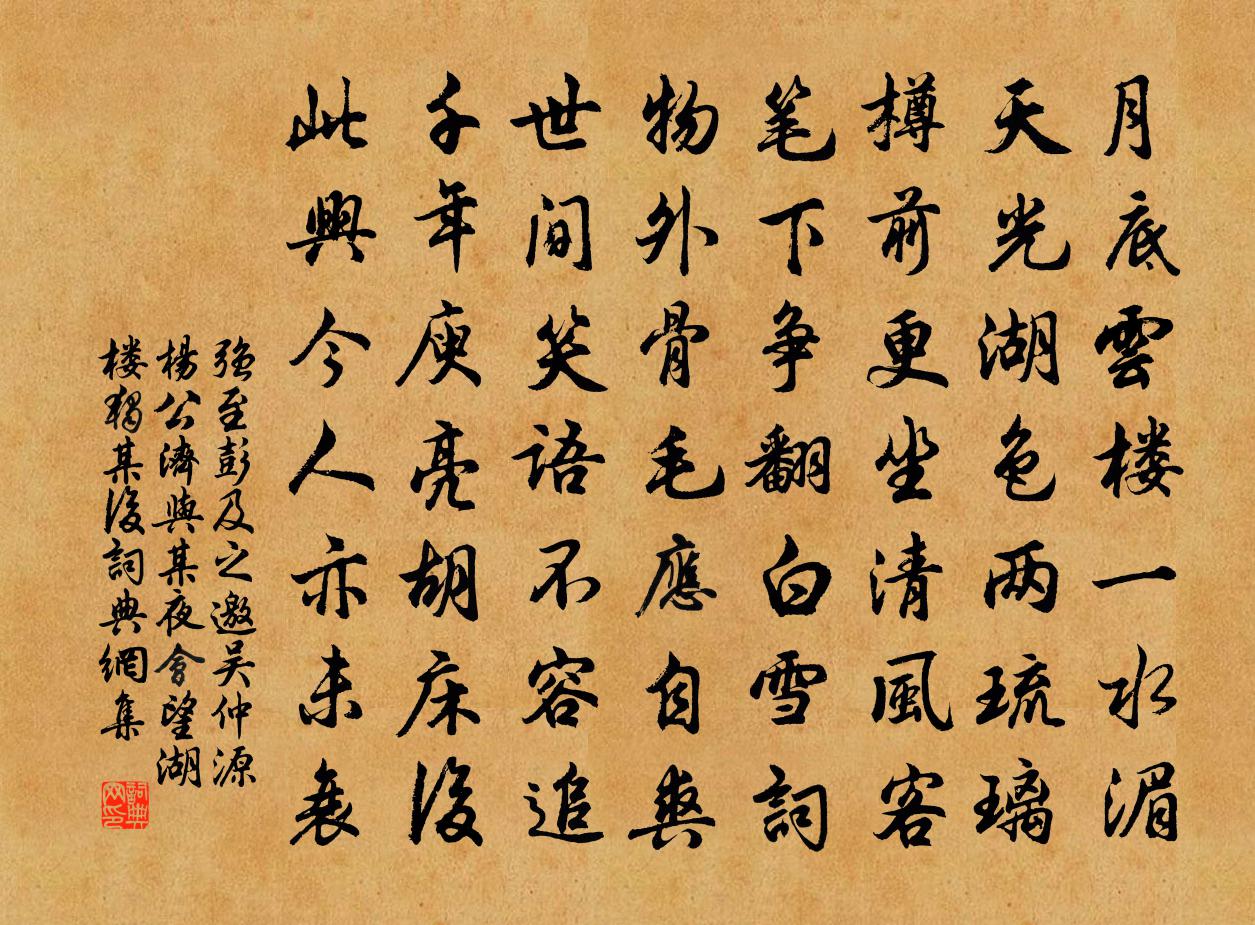 月底雲楼一水湄
天光湖色两琉璃
樽前更坐清風客
笔下争翻白雪詞
物外骨毛應自爽
世間笑語不容追
千年庾亮胡床後
此興今人亦未衰
強至彭及之邀吴仲源
楊公濟與某夜會望湖
楼獨某後詞典網集
詞典网印